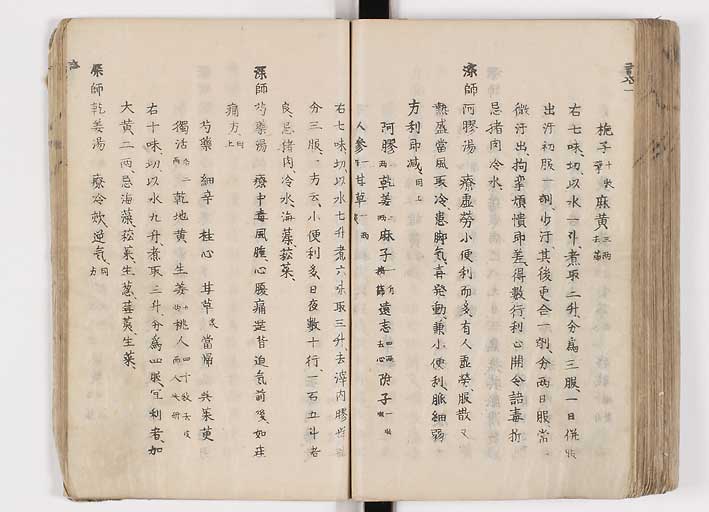 梔子 十枚 擘 麻黄 三両 去節
右七味切以水一斗煮取二升分為三服一日併服
出汗初服一剤少汗其後更合一剤分両日服常
微汗出拘攣煩憒即差得数行利心開令諸毒折
忌猪肉冷水
深師阿膠湯 療虚労小便利而多有人虚労服散又
熱盛當風取冷患脚気喜発動兼小便利脈細弱
方利即減 同上
阿膠 両 乾姜 両 麻子 一升 遠志 四両 去心 附子 一枚
人参 一両 甘草 一両
右七味切以水七升煮六味取三升去滓内膠
分三服一方云小便利多日夜数十行一石五斗者
良忌猪肉冷水海藻菘菜
深師芍薬湯 療中毒風腫心腹痛達背迫気前後如疰
痛方 同上
芍薬 細辛 桂心 甘草 當帰 呉茱萸
獨活 両 乾地黄 生姜 両 桃人 四十枚去皮
右十味切以水九升煮取三升分為四服宜利者加
大黄二両忌海藻菘菜生葱蕪荑生菜
深師乾姜湯 療冷欬逆気方 同